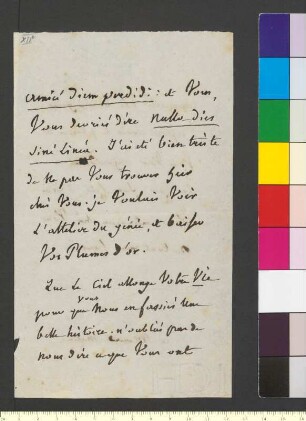 XIIe
amici diem perdidi: et Vous,
Vous devriés dire nulla dies
sine Linea. J'ai été bien triste
de ne pas Vous trouver hier
chéz Vous. je Voulais Voir
L'attelier du génie, et baiser
Vos Plumes d'or.
Que Le Ciel allonge Votre Vie
pour que Vous Nous en fassiés une
belle histoire. n'oubliés pas de
nous dire ce que Vous ont